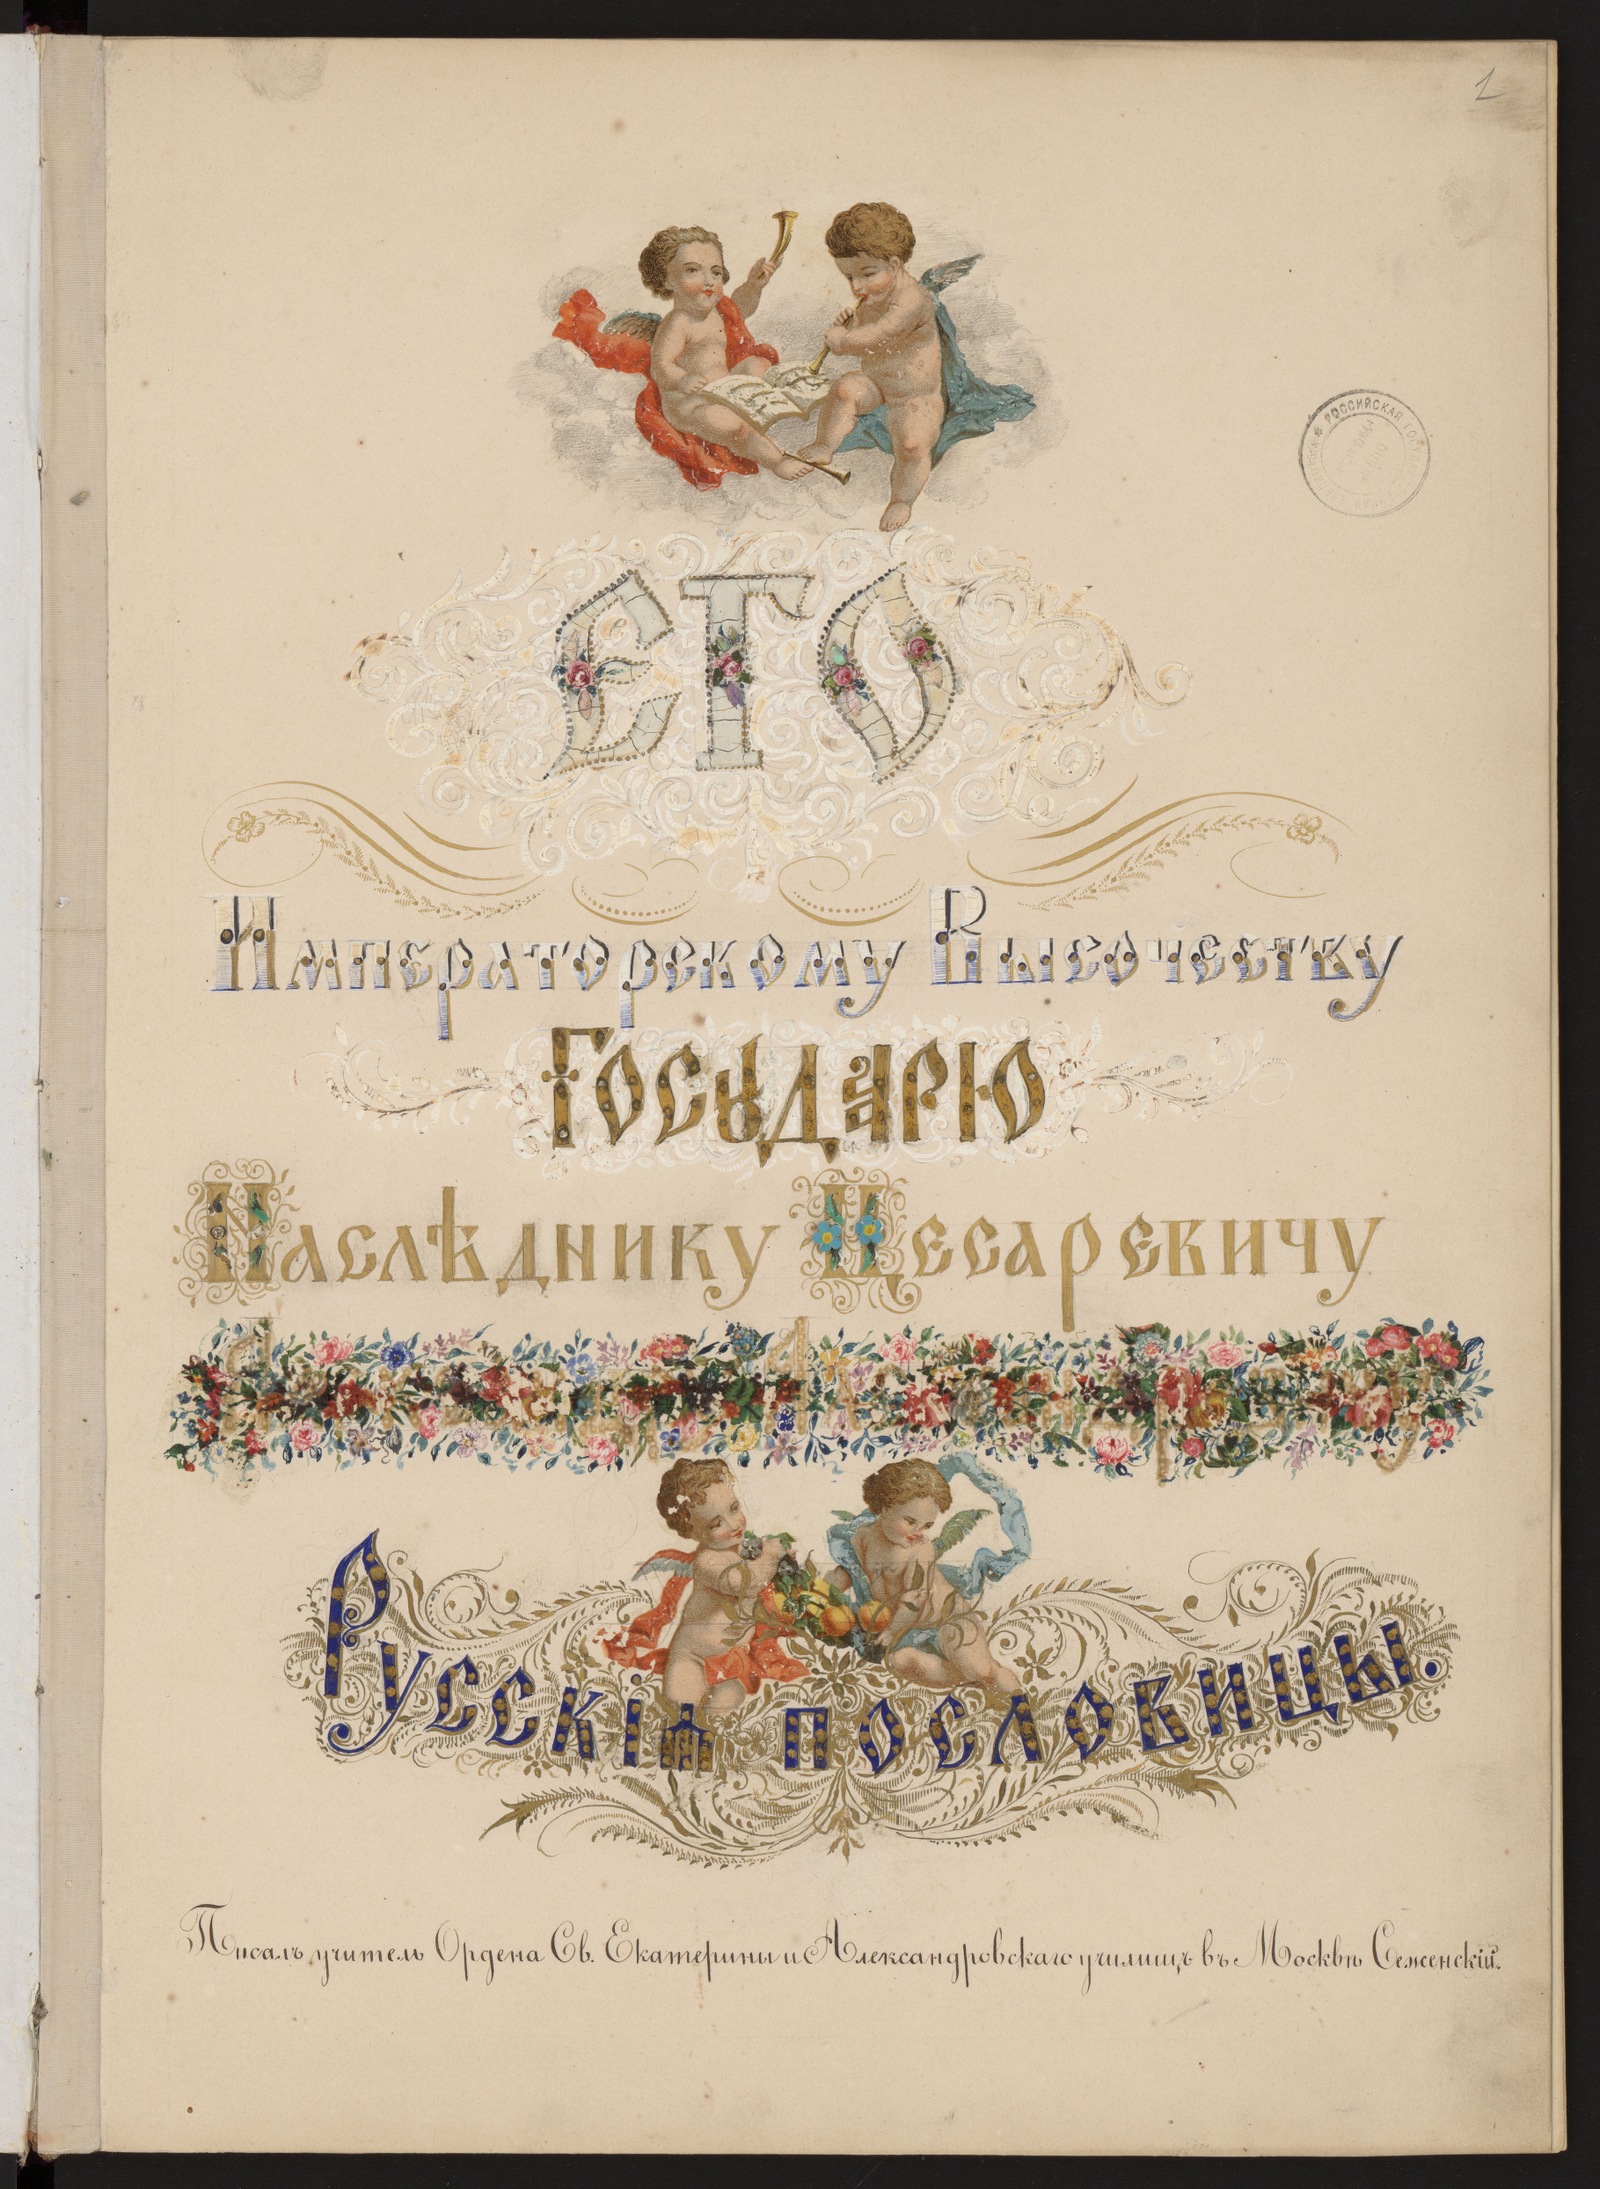 1
РОССИЙСКАЯ
ЕГО
Императорскому Высочеству
Государю
Наслѣднику Цесаревичу
Русскія пословицы.
Писалъ учитель Ордена Св. Екатерины и Александровскаго училищъ въ Москвѣ Семенскій.